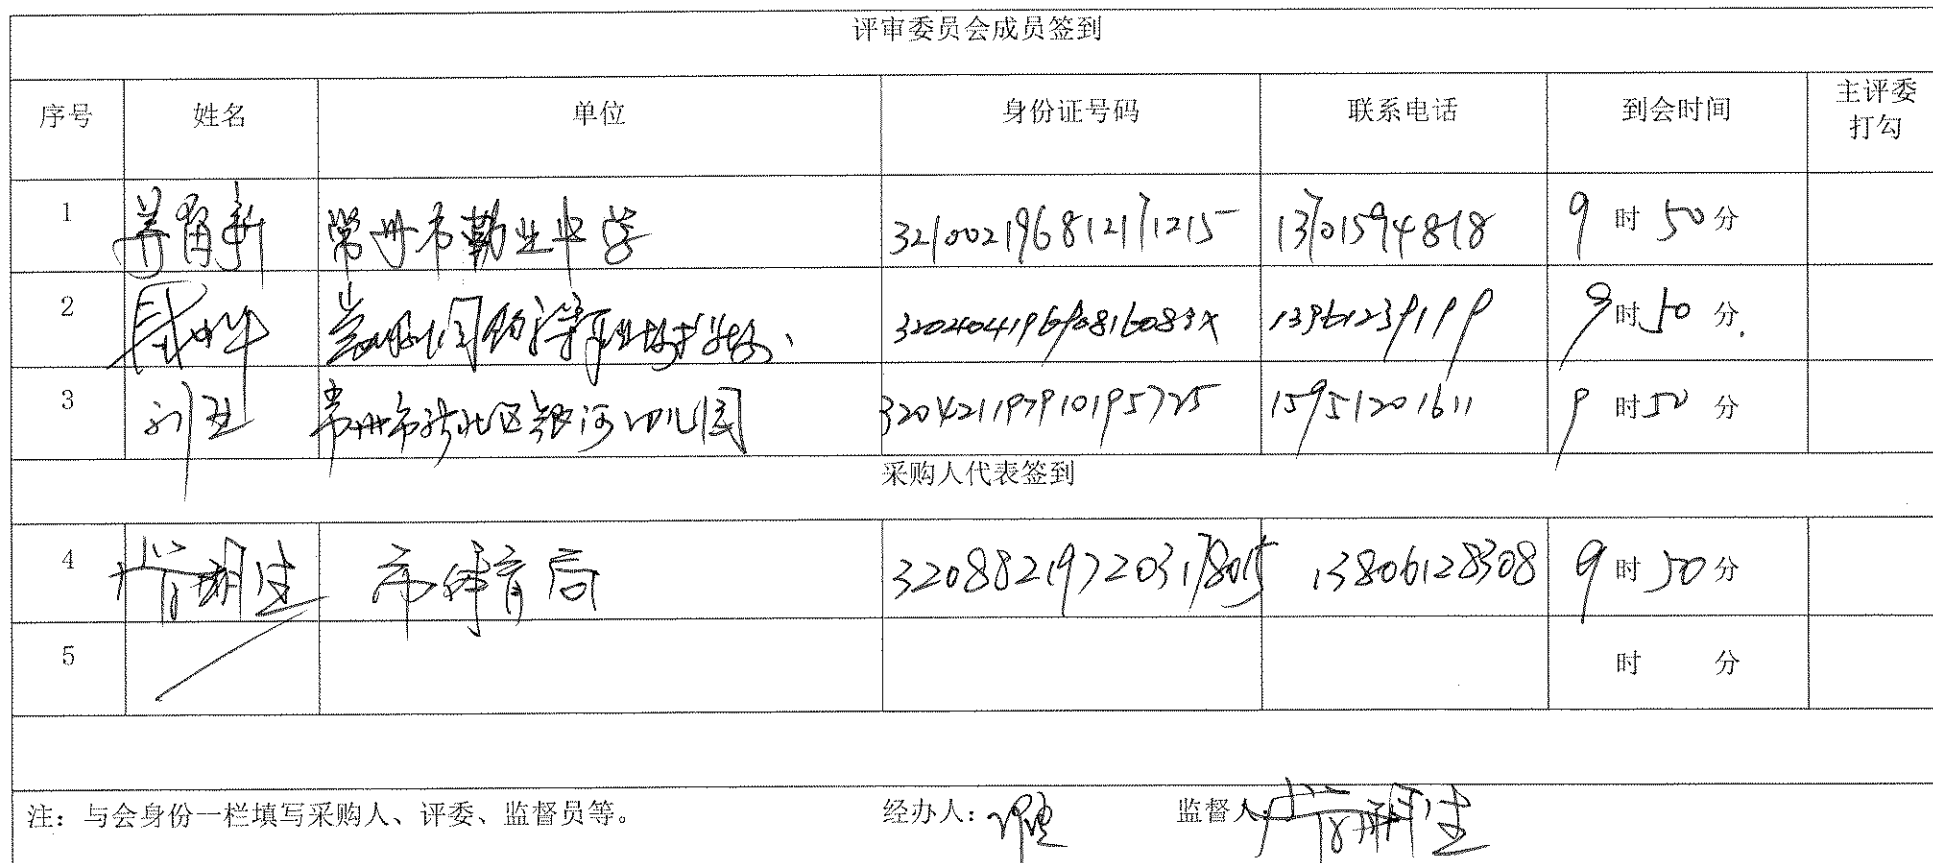 评审委员会成员签到
序号 姓名 单位 身份证号码 联系电话 到会时间 主评委打勾
1 常州市勤业中学 321002196812171215 13701594818 9时50分
2 13961239199 9时50分
3 刘 常州市新北区银河幼儿园 320421197910195725 15951201611 9时50分
采购人代表签到
4 市体育局 320882197203178015 13806128308 9时50分
5 时 分
注：与会身份一栏填写采购人、评委、监督员等。 经办人： 监督人